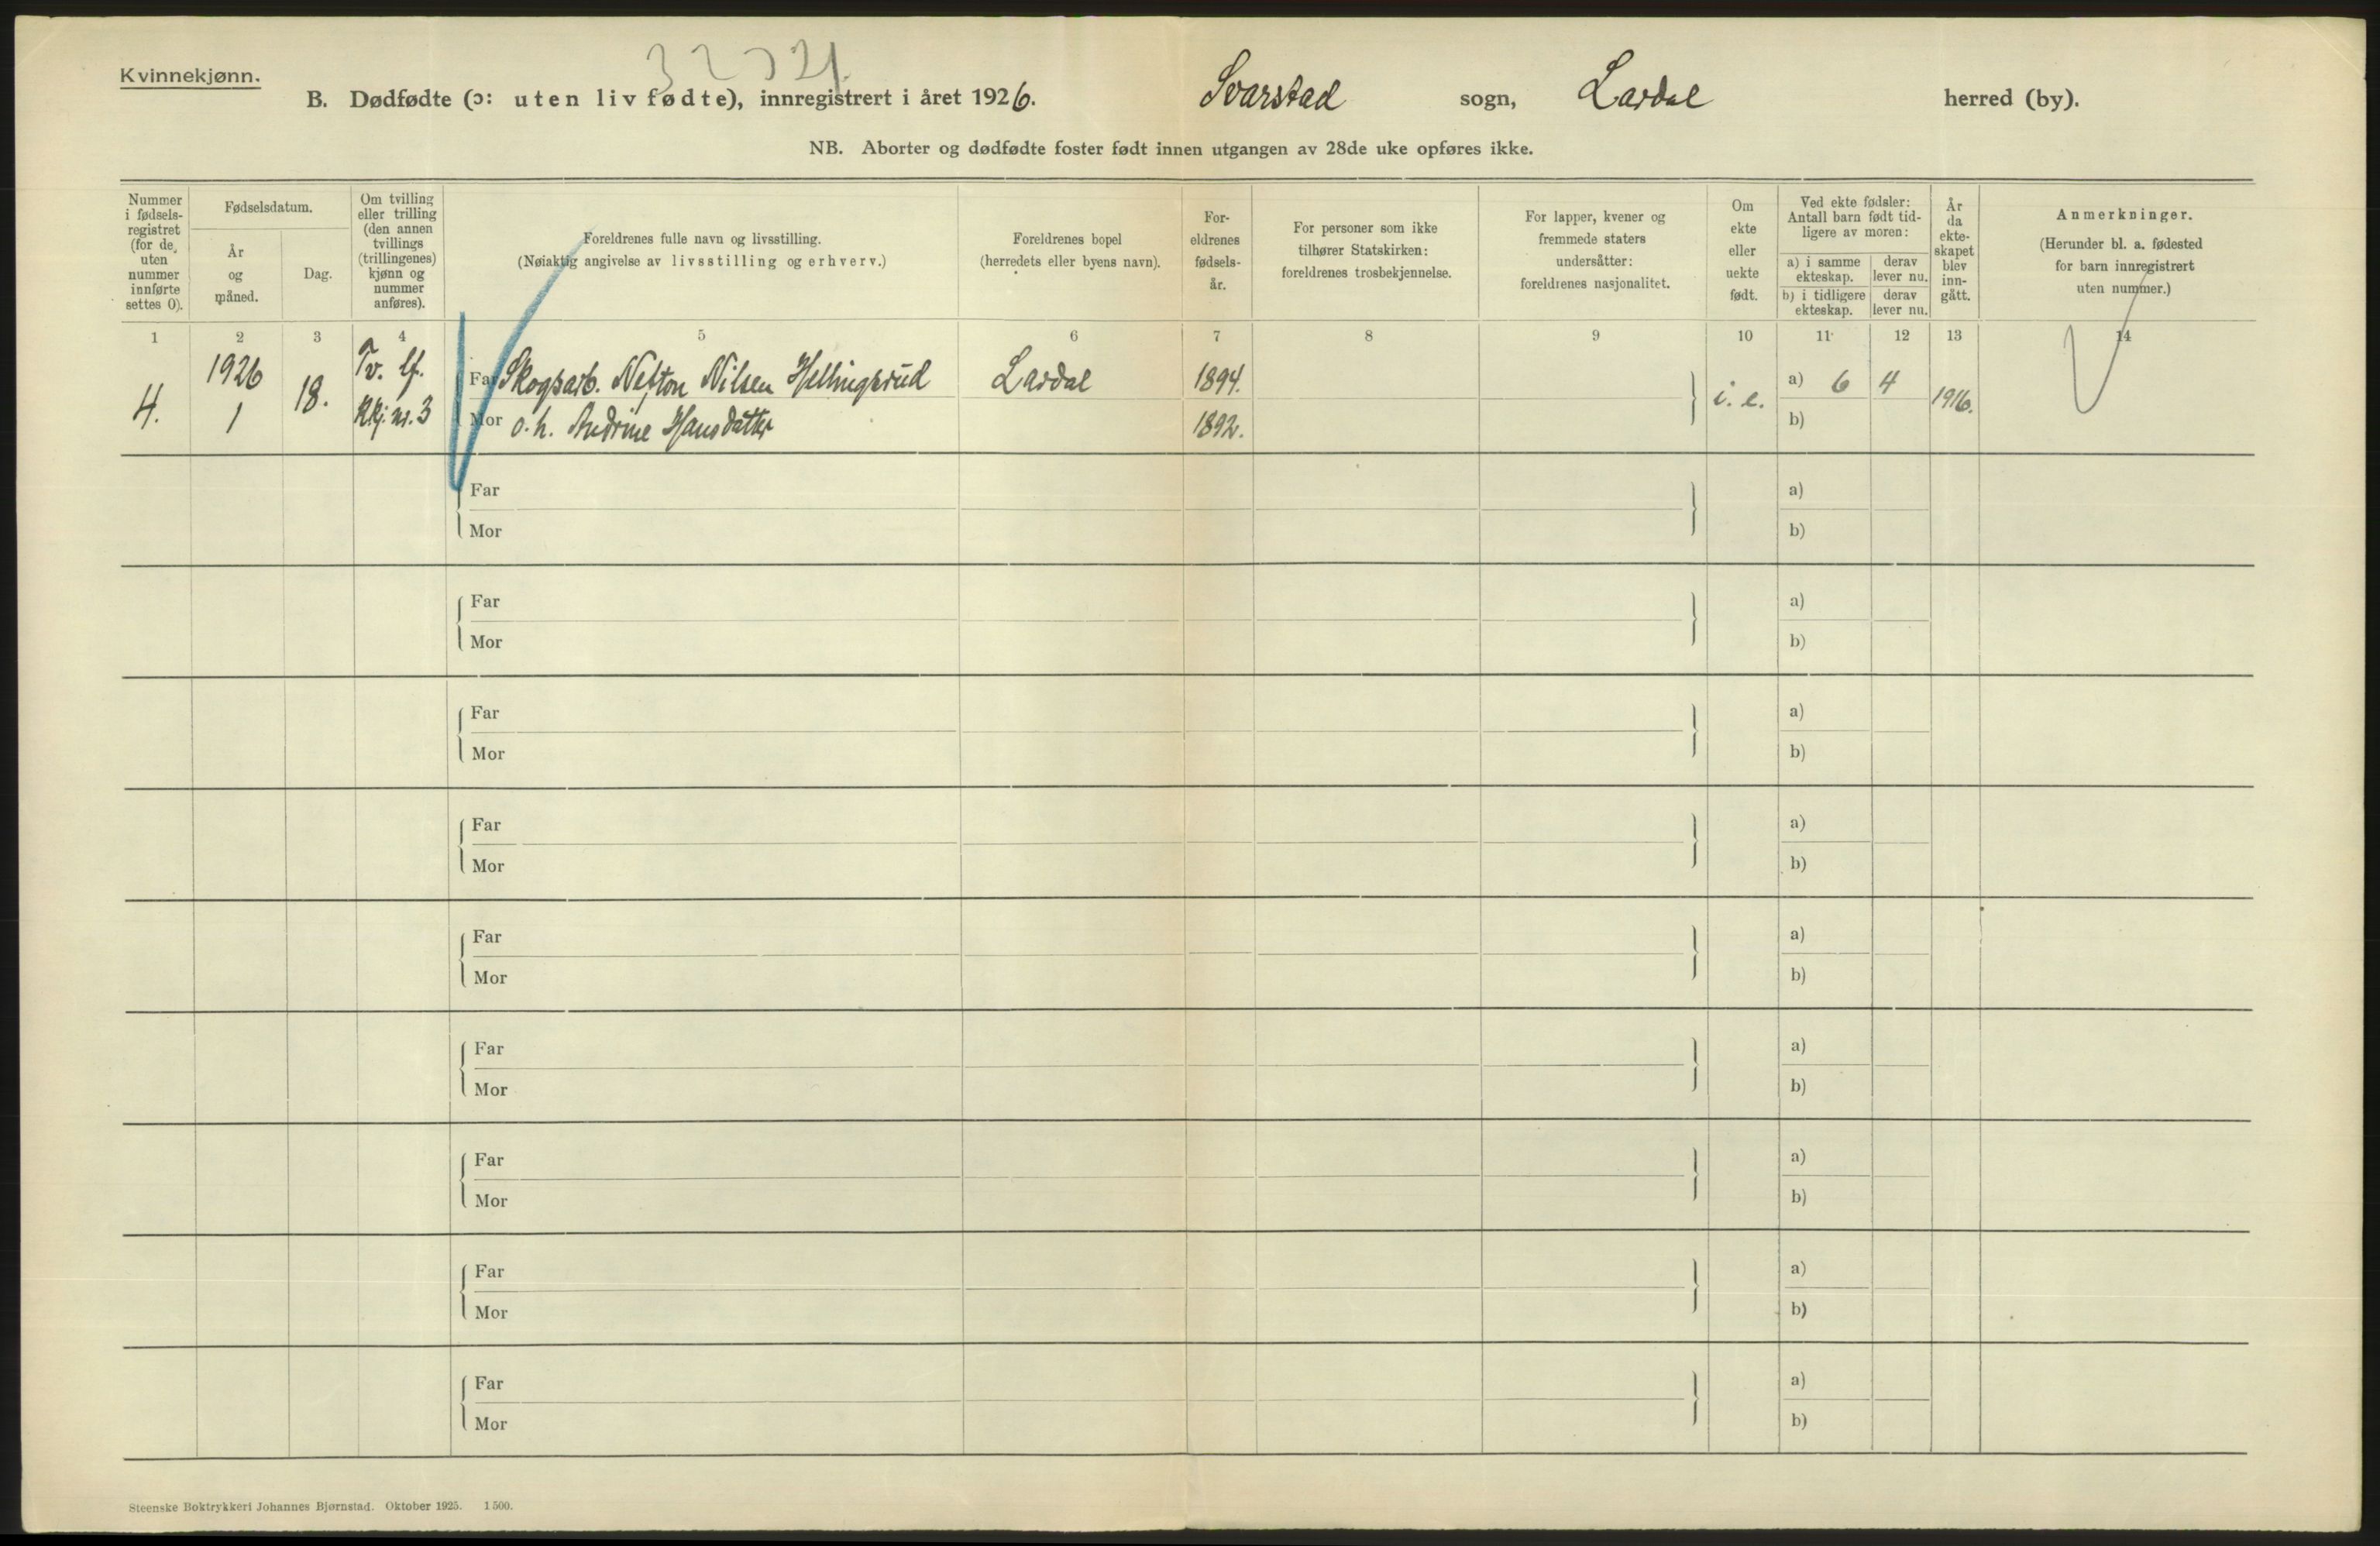 Kvinnekjønn.
B. Dødfødte (ɔ: uten liv fødte), innregistrert i året 1926. Svarstad sogn, Lardal herred (by).
NB. Aborter og dødfødte foster født innen utgangen av 28de uke opføres ikke.
Nummer i fødsels-registret (for de uten nummer innførte settes 0).
Fødselsdatum.
År og måned.
Dag.
Om tvilling eller trilling (den annen tvillings (trillingenes) kjønn og nummer anføres).
Foreldrenes fulle navn og livsstilling.
(Nøiaktig angivelse av livsstilling og erhverv.)
Foreldrenes bopel
(herredets eller byens navn).
For-eldrenes fødsels-år.
For personer som ikke
tilhører Statskirken:
foreldrenes trosbekjennelse.
For lapper, kvener og
fremmede staters
undersåtter:
foreldrenes nasjonalitet.
Om ekte eller uekte født.
Ved ekte fødsler:
Antall barn født tid-
ligere av moren:
a) i samme ekteskap.
derav lever nu.
b) i tidligere ekteskap.
derav lever nu.
År da ekte-skapet blev inn-gått.
Anmerkninger.
(Herunder bl. a. fødested
for barn innregistrert
uten nummer.)
1 2 3 4 5 6 7 8 9 10 11 12 13 14
4. 1926 1 18. Tv. lf. Kkj. nr. 3
Far Skogsarb. Nilsen Hellingsrud Lardal 1894. i. e. a) 6 4 1916.
Mor o. h. Andrine Hansdatter 1892. b)
Far a)
Mor b)
Far a)
Mor b)
Far a)
Mor b)
Far a)
Mor b)
Far a)
Mor b)
Far a)
Mor b)
Far a)
Mor b)
Far a)
Mor b)
Far a)
Mor b)
Steenske Boktrykkeri Johannes Bjørnstad. Oktober 1925. 1500.